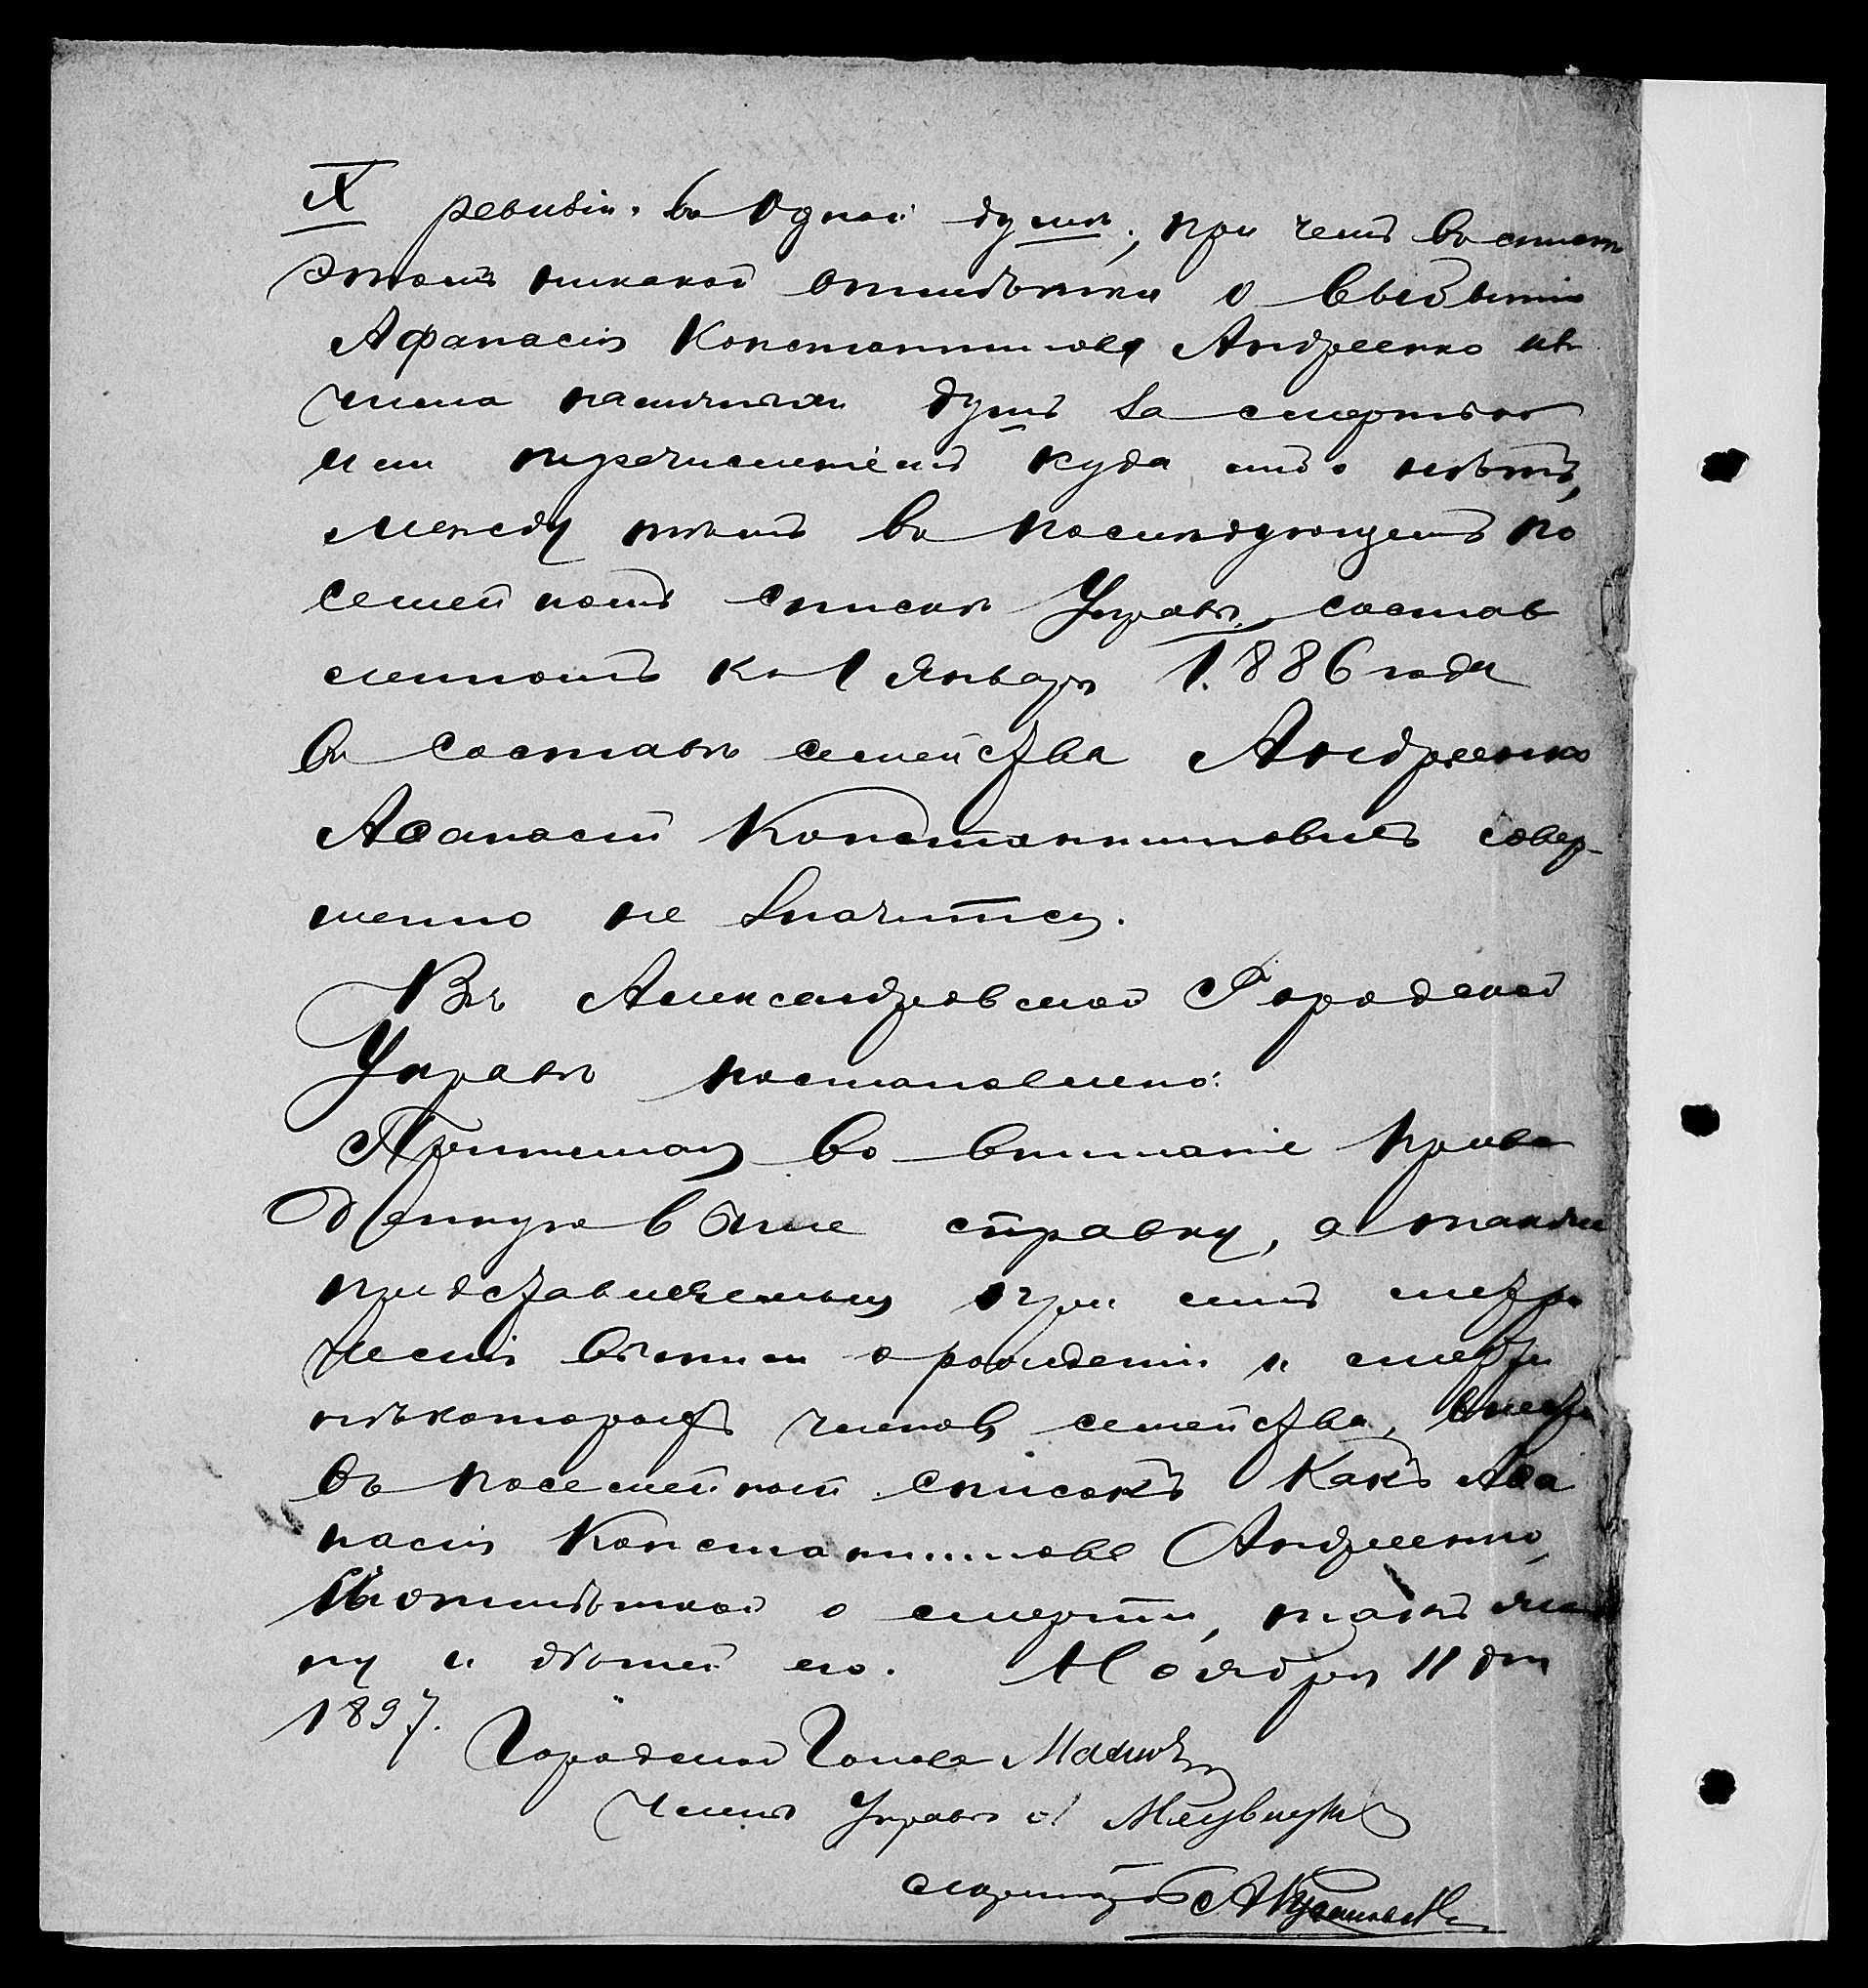 IX ревизіи въ одной душѣ, при чемъ въ спискѣ
этомъ никакой отмѣтки о выбытіи
Афанасія Константинова Андреенко изъ
числа наличныхъ душъ за смертью
или перечисленіемъ куда либо нѣтъ,
между тѣмъ въ послѣдующемъ по
семейномъ спискѣ Управы, состав
ленномъ къ 1 Января 1886 года
въ составѣ семейства Андреенко
Аѳанасій Константиновичъ совер-
шенно не значится.
Въ Александровской Городской
Управѣ постановлено:
Принимая во вниманіе приве
денную выше справку, а также
представленныя при немъ метри
ческія выписи о рожденіи и смерти
нѣкоторыхъ членовъ семейства, внести
въ посемейный списокъ какъ Аѳа
насія Константинова Андреенко,
съ отмѣткой о смерти, такъ же
ну и дѣтей его. Ноября 11 дня
1897.
Городской Голова
Членъ Управы
Секретарь